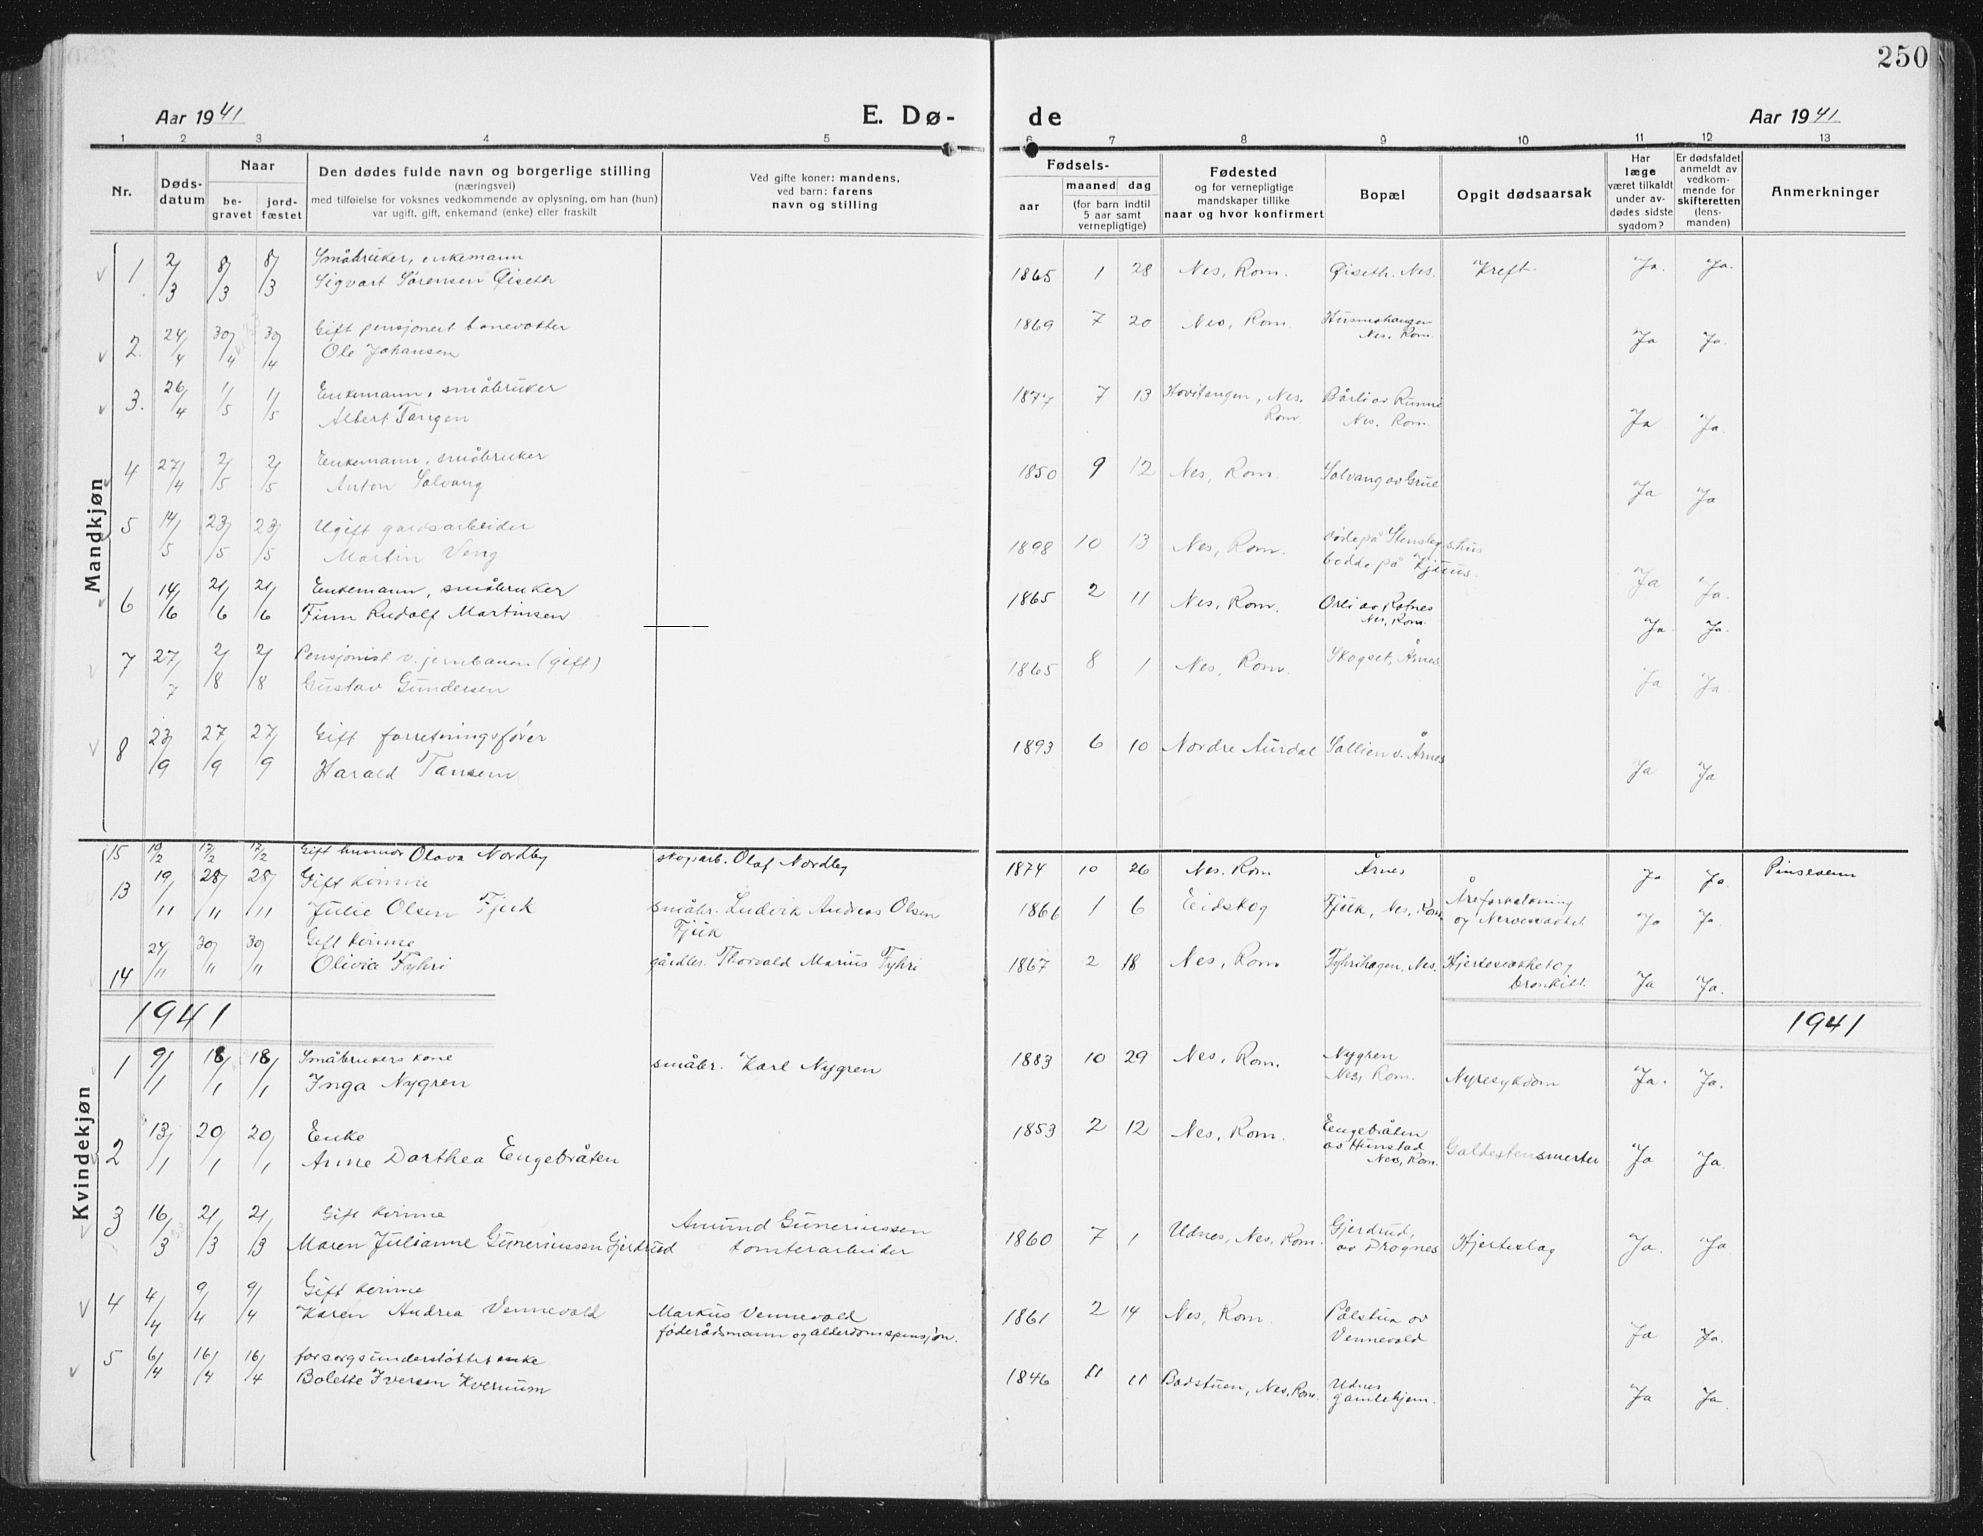 250
Aar 1941 E. Dø- de Aar 1941
1 2 3 4 5 6 7 8 9 10 11 12 13
Nr.
Døds-
datum
Naar
be-
gravet
jord-
fæstet
Den dødes fulde navn og borgerlige stilling
(næringsvei)
med tilføielse for voksnes vedkommende av oplysning, om han (hun)
var ugift, gift, enkemand (enke) eller fraskilt
Ved gifte koner: mandens,
ved barn: farens
navn og stilling
Fødsels-
aar
maaned dag
(for barn indtil
5 aar samt
vernepligtige)
Fødested
og for vernepligtige
mandskaper tillike
naar og hvor konfirmert
Bopæl
Opgit dødsaarsak
Har
læge
været tilkaldt
under av-
dødes sidste
sygdom?
Er dødsfaldet
anmeldt av
vedkom-
mende for
skifteretten
(lens-
manden)
Anmerkninger
Mandkjøn
1 2/3 8/3 8/3 Småbruker, enkemann
Sigvart Sørensen Øiseth 1865 1 28 Nes, Rom. Øiseth. Nes. Kreft. Ja. Ja.
2. 24/4 30/4 30/4 Gift pensjonert banevokter
Ole Johansen 1869 7 20 Nes, Rom. Husmohaugen
Nes. Rom. Ja Ja.
3. 26/4 1/5 1/5 Enkemann, småbruker
Albert Tangen 1877 7 13 Hovitangen, Nes. Rom. Bårli av Runni
Nes. Rom. Ja Ja.
4 27/4 2/5 2/5 Enkemann, småbruker
Anton Solvang 1850 9 12 Nes, Rom. Solvang av Grue Ja Ja
5 14/5 23/5 23/5 Ugift gardsarbeider
Martin Veng 1898 10 13 Nes, Rom. døde på Stensby s.hus
bodde på Ja Ja.
6 14/6 21/6 21/6 Enkemann, småbruker
Finn Rudolf Martinsen 1865 2 11 Nes, Rom. Orli av Rotnes
Nes, Rom. Ja. Ja.
7 27/7 2/8 2/8 Pensjonist v. jernbanen (gift)
Gustav Gundersen 1865 8 1 Nes, Rom. Skogset, Årnes Ja Ja.
8 23/9 27/9 27/9 Gift forretningsfører
Harald Tansem 1893 6 10 Nordre Aurdal Sollien v. Årnes Ja Ja
Kvindekjøn
15 10/2 17/2 17/2 Gift husmor Olava Nordby skogsarb. Olaf Nordby 1874 10 26 Nes. Rom Årnes Ja Ja. Pinsevenn
13 19/11 28/11 28/11 Gift kvinne
Julie Olsen Fjuk småbr. Ludvik Andreas Olsen
Fjuk 1866 1 6 Eidskog Fjuk, Nes, Rom Åreforkalkning
og Nervesvakhet. Ja Ja.
14 24/11 30/11 30/11 Gift kvinne
Olivia Fyhri gårdbr. Thorvald Marius Fyhri 1867 2 18 Nes, Rom Fyhrihagen, Nes. Hjertesvakhet og
bronkitt. Ja Ja.
1941 1941
1 9/1 18/1 18/1 Småbrukers kone
Inga Nygren småbr. Karl Nygren 1883 10 29 Nes, Rom. Nygren
Nes, Rom. Nyresykdom Ja. Ja.
2 13/1 20/1 20/1 Enke
Anne Dorthea Engebråten 1853 2 12 Nes, Rom. Engebråten
av Hunstad
Nes, Rom. Galdestensmerter Ja Ja.
3 16/3 21/3 21/3 Gift kvinne
Maren Julianne Guneriussen Gjerdrud Amund Guneriussen
tomterarbeider 1860 7 1 Udnes, Nes, Rom. Gjerdrud,
av Drognes Hjerteslag Ja. Ja
4 4/4 9/4 9/4 Gift kvinne
Karen Andrea Vennevold Markus Vennevold
føderådsmann og alderdomspensjon. 1861 2 14 Nes, Rom. Pålstua av
Vennevold Ja Ja.
5 6/4 16/4 16/4 forsorgsunderstøttet enke
Bolette Iversen Kvernum 1846 11 11 Badstuen, Nes, Rom. Udnes
gamlehjem. Ja Ja.